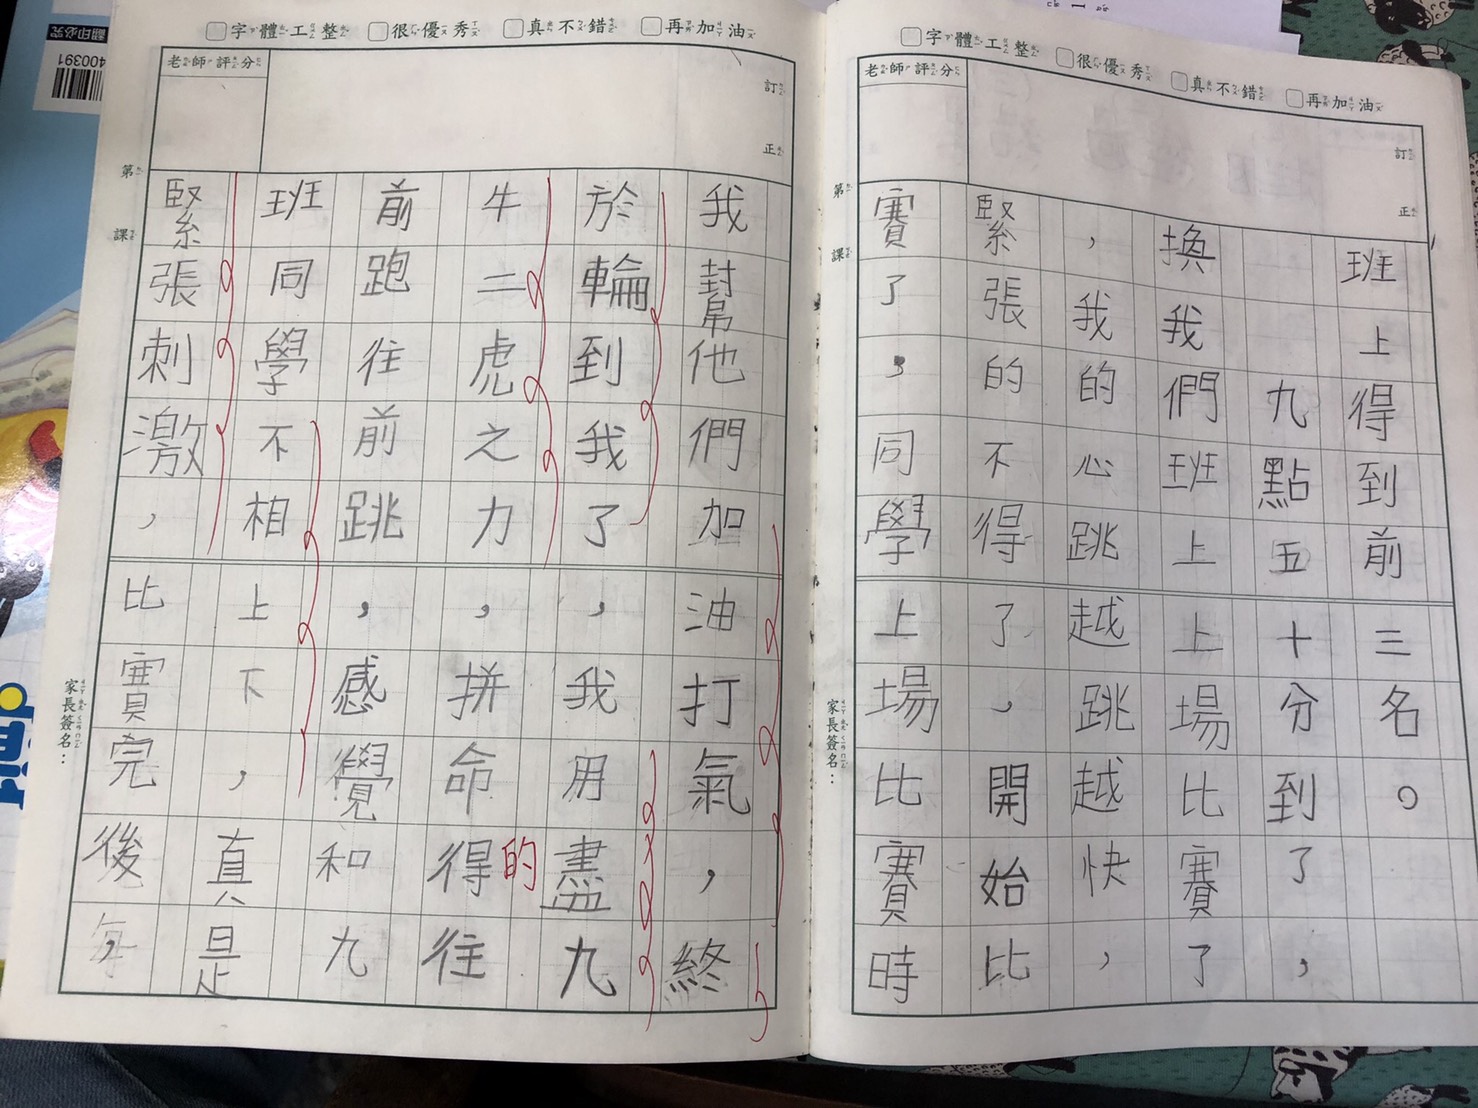 字體工整 很優秀 真不錯 再加油
老師評分
訂正
第 課
家長簽名：
班上得到前三名。
九點五十分到了，
換我們班上上場比賽了
，我的心跳越跳越快，
緊張的不得了，開始比
賽了，同學上場比賽時
字體工整 很優秀 真不錯 再加油
老師評分
訂正
第 課
家長簽名：
我幫他們加油打氣，終
於輪到我了，我用盡九
牛二虎之力，拼命得往
的
前跑往前跳，感覺和九
班同學不相上下，真是
緊張刺激，比賽完後，
翻印必究
400391